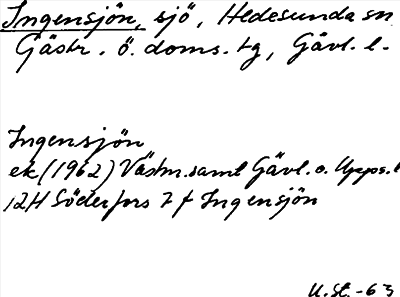 Ingensjön, sjö, Hedesunda sn
Gästr. ö. doms. tg, Gävl. l.
Ingensjön
ek (1962) Västm. saml Gävl. o. Upps. l
12H Söderfors 7 f Ingensjön
U.St. -63